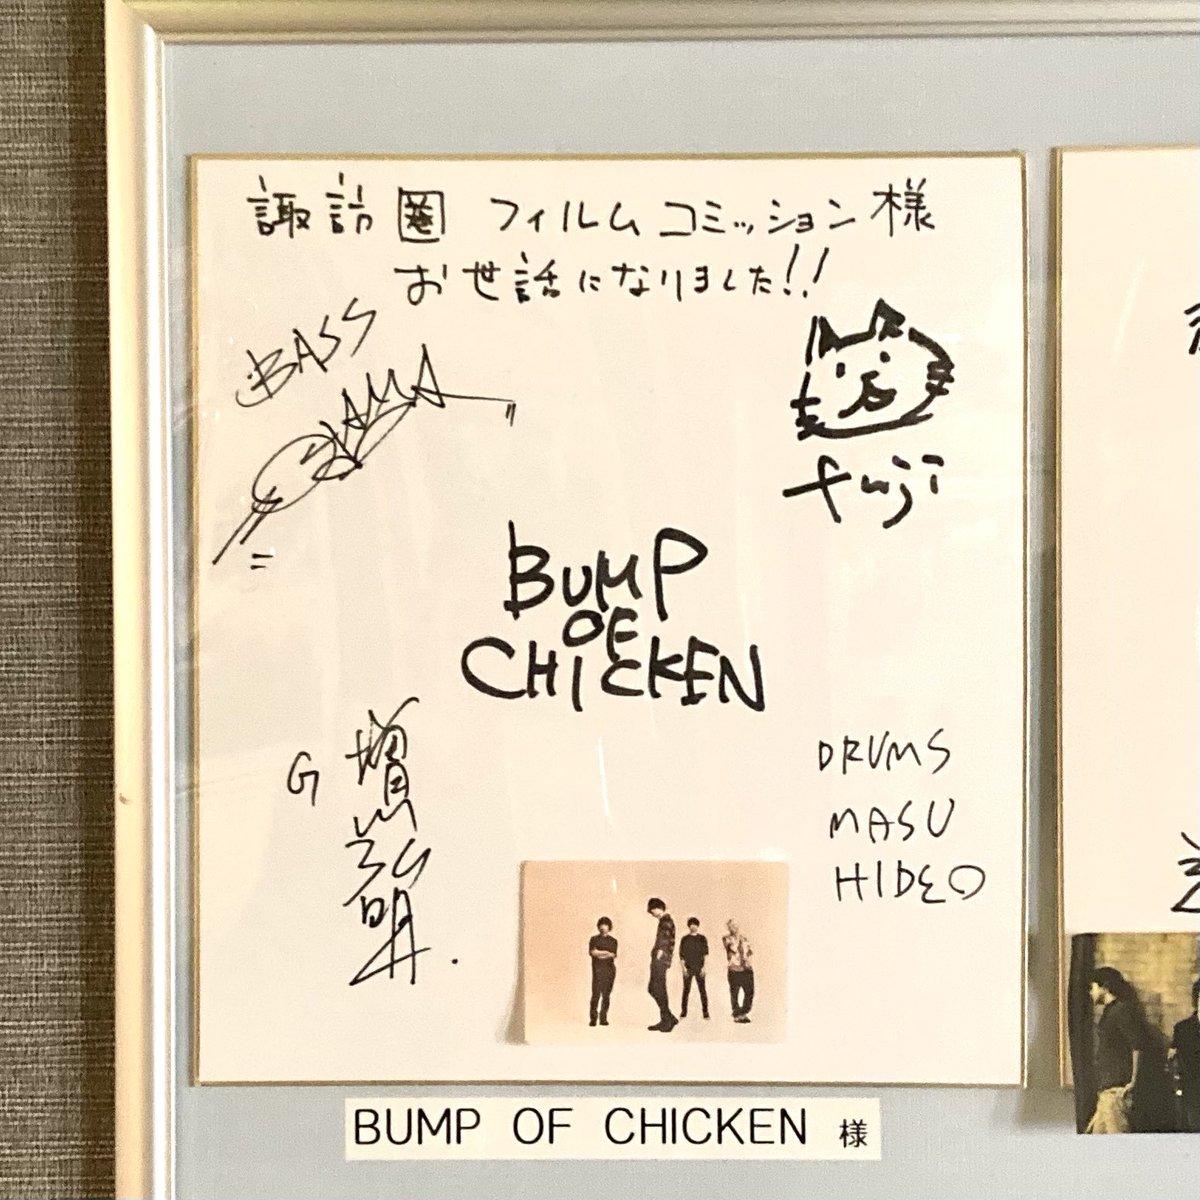 諏訪圏 フィルムコミッション様
お世話になりました!!
BASS
CHAMA
fuji
BUMP
OF
CHICKEN
G 増川弘明.
DRUMS
MASU
HIDEO
BUMP OF CHICKEN 様